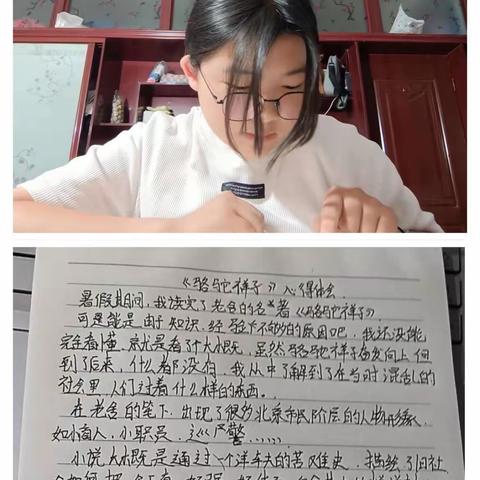 《骆驼祥子》心得体会.
暑假期间,我读完了老舍的名著《骆驼祥子》.
可能是由于知识.经验不够的原因吧.我还没能
完全看懂.就是看了个大概.虽然骆驼祥子奋发向上.但
到了后来,什么都没有.我从中了解到了在当时混乱的
社会里.人们过着什么样的东西..
在老舍的笔下.出现了很多北京市民阶层的人物形象.
如小商人,小职员.巡警......
小说大概是通过一个洋车夫的苦难史.描绘了旧社